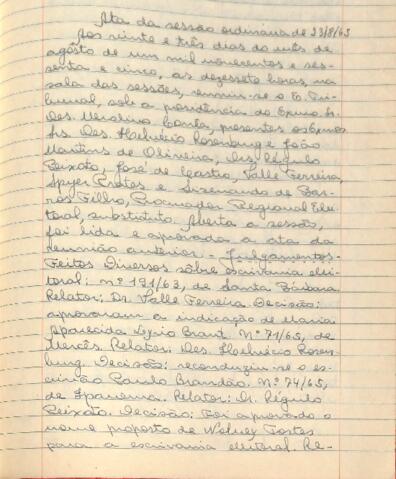 Ata da sessão ordinária de 23/8/65
Aos vinte e três dias do mês de
agôsto de um mil novecentos e ses-
senta e cinco, às dezessete horas, na
sala das sessões, reuniu-se o E. Tri-
bunal, sob a presidência do Exmo. Sr.
Des. Merolino Corrêa, presentes os Exmos.
Srs. Des. Helvécio Rosenburg e João
Martins de Oliveira, Drs. Régulo
Peixoto, José de Castro, Valle Ferreira,
Spyer Prates e Sizenando de Bar-
ros Filho, Procurador Regional Elei-
toral, substituto. Aberta a sessão,
foi lida e aprovada a ata da
reunião anterior. - Julgamentos -
Feitos Diversos sôbre escrivania elei-
toral: nº 191/63, de Santa Bárbara
Relator: Dr. Valle Ferreira. Decisão:
aprovaram a indicação de Maria
Aparecida Braut. Nº 71/65, de
Mercês. Relator: Des. Helvécio Rosen-
burg. Decisão: reconduziu-se o es-
crivão Paulo Brandão. Nº 74/65,
de Ipanema. Relator: Dr. Régulo
Peixoto. Decisão: Foi aprovado o
nome proposto de Wolney Fortes
para a escrivania eleitoral. Re-